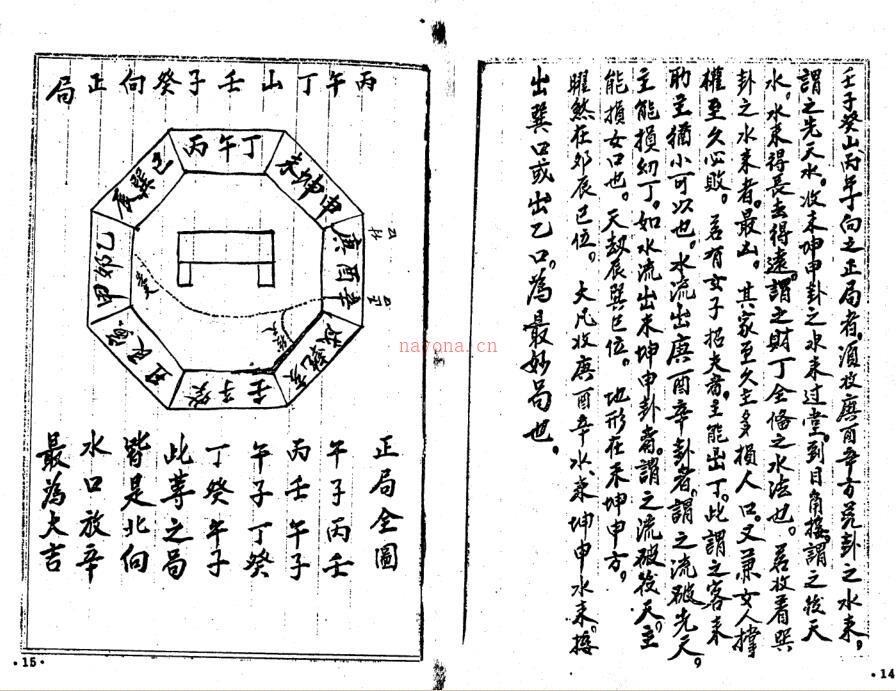 壬子癸山丙午向之正局者，須收庚酉辛方兌卦之水來，
謂之先天水。收未坤申卦之水來过堂。到目角接，謂之後天
水。水來得長去得遠。謂之財丁全俻之水法也。若收着巽
卦之水來者。最凶。其家至久主多損人口。又兼女人撑
權至久必敗。若有女子招夫者，主能出丁。此謂之客來
助主猶小可以也。水流出庚酉辛卦者。謂之流破先天。
主能損幼丁。如水流出未坤申卦者。謂之流破後天。主
能損女口也。天劫辰巽巳位。地形在未坤申方。
曜煞在卯辰巳位。大凡收庚酉辛水、來坤申水來接。
出巽口或出乙口。為最妙局也。
·14
丙午丁山壬子癸向正局
丙午丁
未坤申
庚酉辛
戌乾亥
壬子癸
丑艮寅
甲卯乙
辰巽巳
正局全圖
午子丙壬
丙壬午子
午子丁癸
丁癸午子
此等之局
皆是北向
水口放辛
最為大吉
·15·
nayona.cn